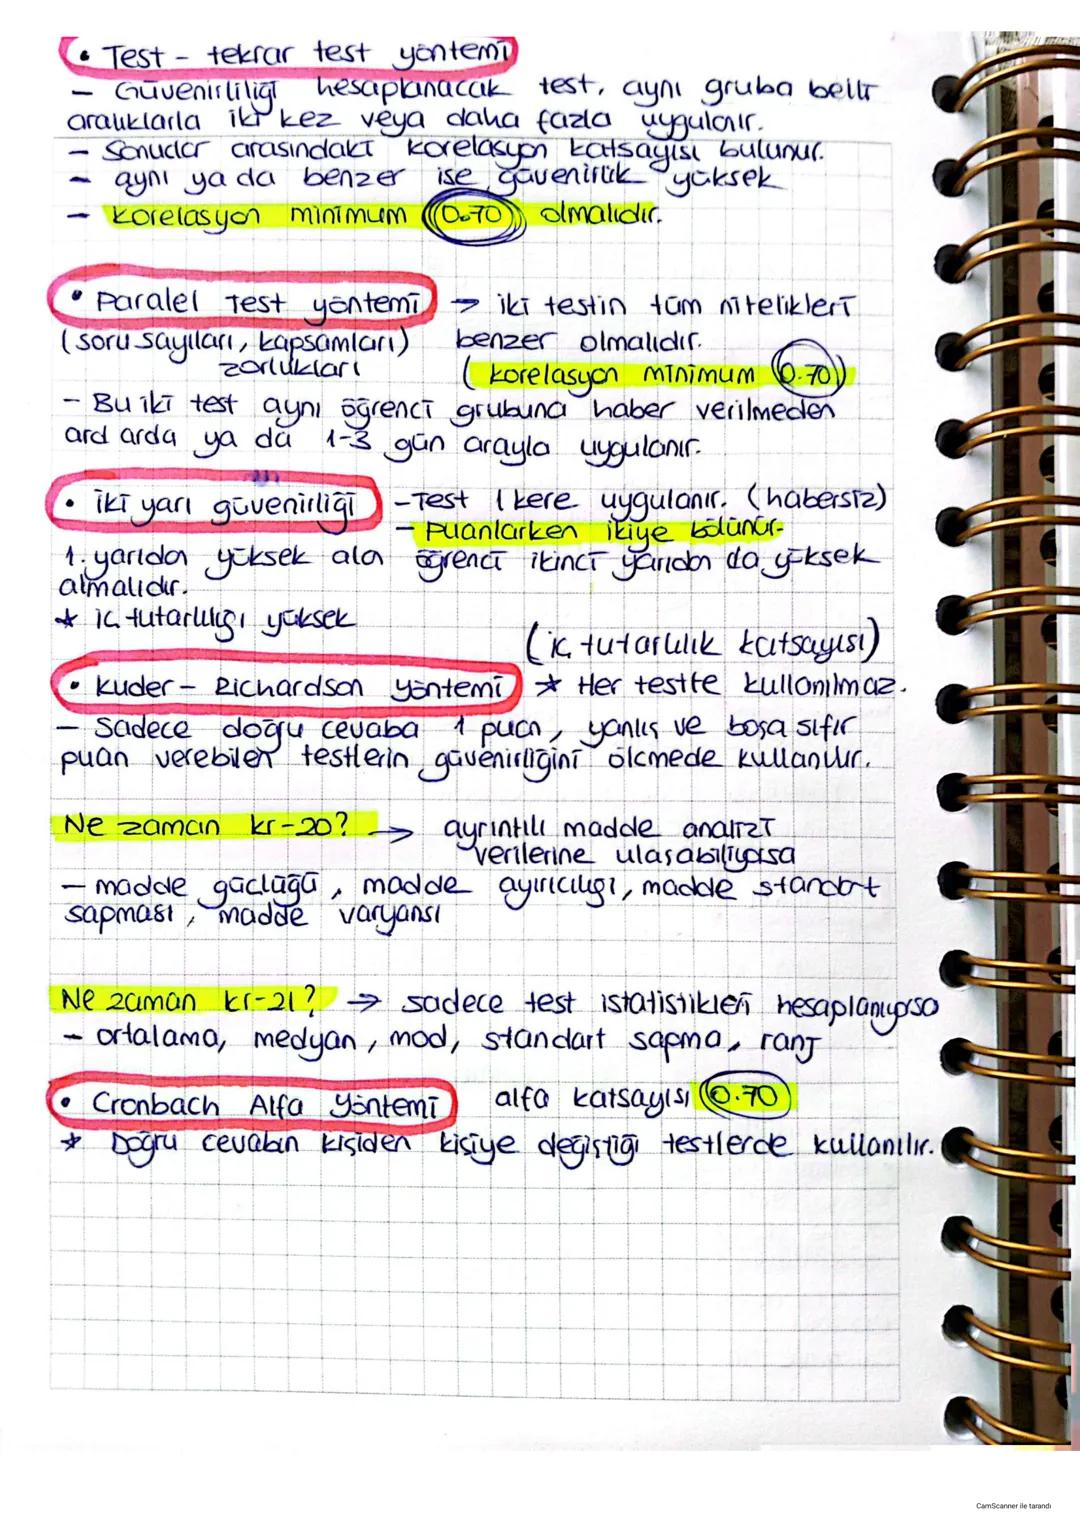 • Test - tekrar test yöntemi
- Güvenirliliği hesaplanacak test, aynı gruba belir
aralıklarla iki kez veya daha fazla uygulanır.
- Sonuclar arasındaki korelasyon katsayısı bulunur.
- aynı ya da benzer ise güvenirlik yüksek
- korelasyon minimum 0.70 olmalıdır.
• Paralel Test yöntemi → iki testin tüm nitelikleri
(soru sayıları, kapsamları) benzer olmalıdır.
zorlukları (korelasyon minimum 0.70)
- Bu iki test aynı öğrenci grubuna haber verilmeden
ard arda ya da 1-3 gün arayla uygulanır.
• İki yarı güvenirliği - Test 1 kere uygulanır. (habersiz)
- Puanlarken ikiye bölünür.
1. yarıdan yüksek alan öğrenci ikinci yarıdan da yüksek
almalıdır.
* iç tutarlılığı yüksek
(iç tutarlılık katsayısı)
• Kuder - Richardson yöntemi * Her testte kullanılmaz.
- Sadece doğru cevaba 1 puan, yanlış ve boşa sıfır
puan verebilen testlerin güvenirliğini ölçmede kullanılır.
Ne zaman kr-20? → ayrıntılı madde analizi
verilerine ulaşabiliyorsa
- madde güçlüğü, madde ayırıcılığı, madde standart
sapması, madde varyansı
Ne zaman kr-21? → sadece test istatistikleri hesaplanıyorsa
- ortalama, medyan, mod, standart sapma, ranj
• Cronbach Alfa Yöntemi alfa katsayısı 0.70
* Doğru cevabın kişiden kişiye değiştiği testlerde kullanılır.
CamScanner ile tarandı